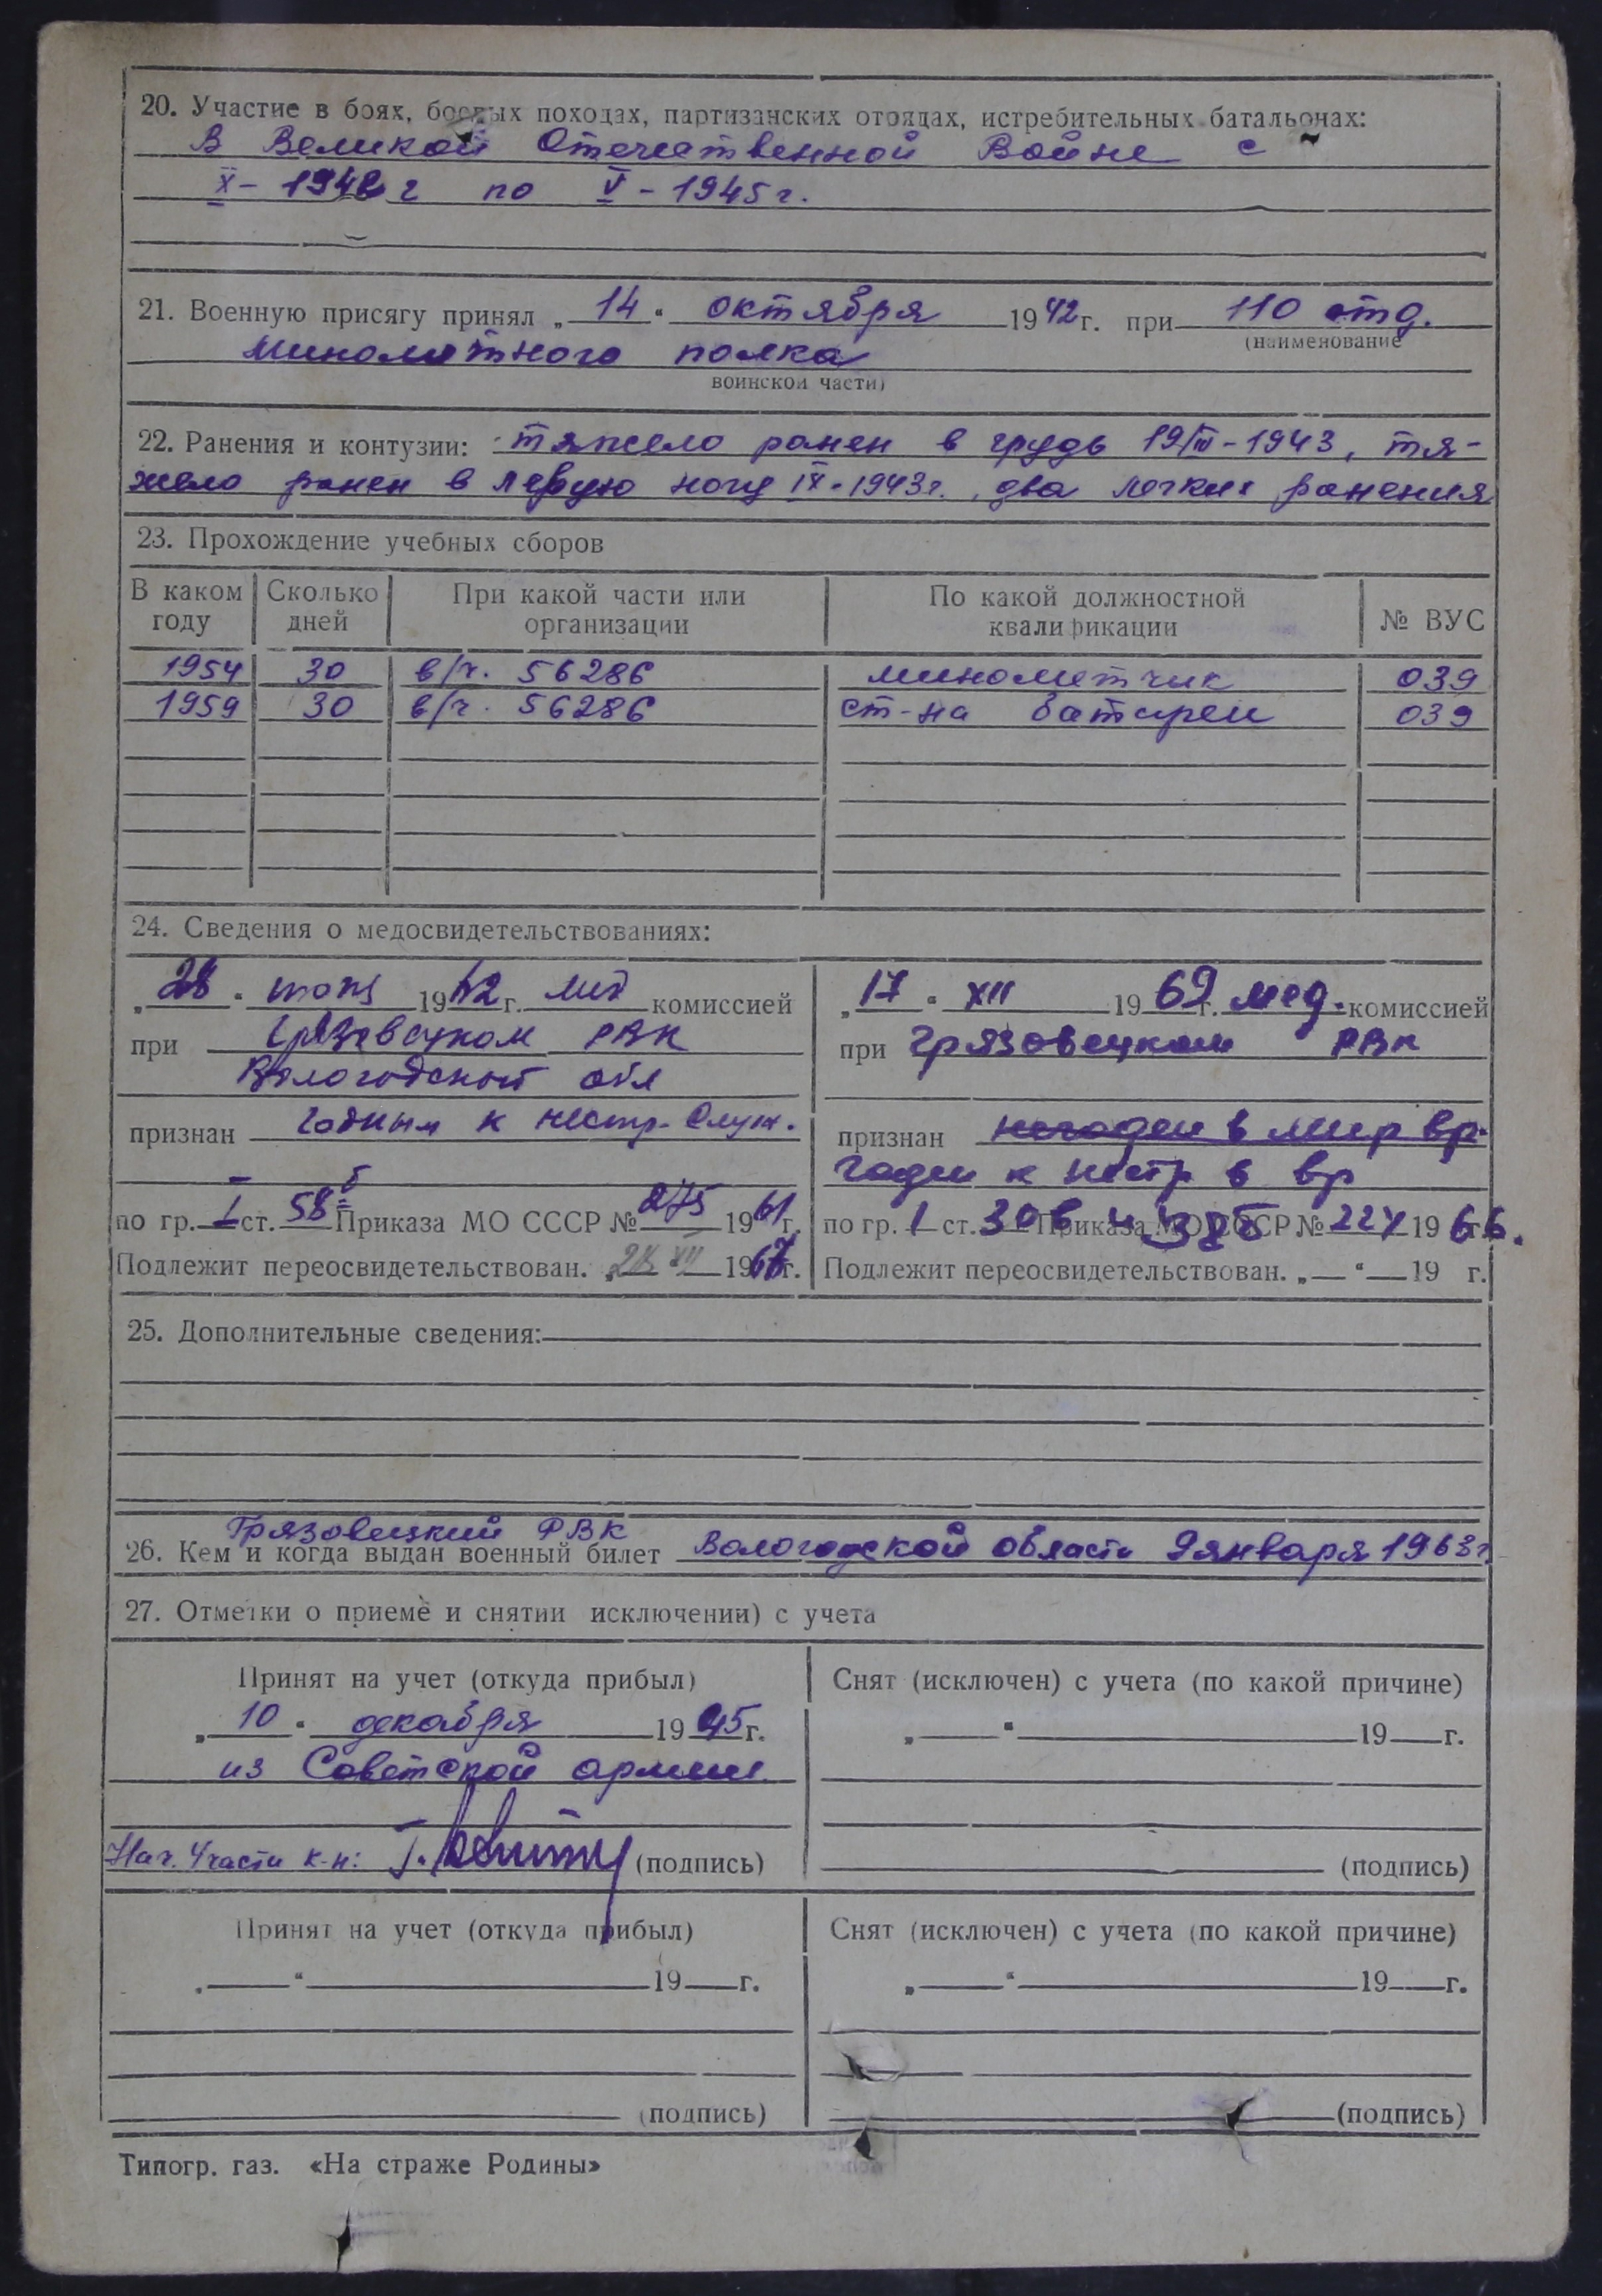 20. Участие в боях, боевых походах, партизанских отрядах, истребительных батальонах:
В Великой Отечественной Войне с
X - 1942 г по V - 1945 г.
21. Военную присягу принял „ 14 “ октября 1942 г. при 110 отд.
(наименование
минометного полка
воинской части)
22. Ранения и контузии: тяжело ранен в грудь 19/III-1943, тя-
жело ранен в левую ногу IX-1943г., два легких ранения
23. Прохождение учебных сборов
В каком году Сколько дней При какой части или организации По какой должностной квалификации № ВУС
1954 30 в/ч. 56286 минометчик 039
1959 30 в/ч. 56286 ст-на батареи 039
24. Сведения о медосвидетельствованиях:
„ 28 “ 19 г. мед комиссией
при Грязовецком РВК
Вологодской обл
признан годным к нестр. служ.
по гр. I ст. 58б Приказа МО СССР № 275 1961 г.
Подлежит переосвидетельствован. „ “ XII 1967 г.
„ 17 “ XII 1969 г. мед. комиссией
при Грязовецком РВК
признан негоден в мир вр.
годен к нестр в вр
по гр. 1 ст. 30в и 38б Приказа МО СССР № 224 1966 г.
Подлежит переосвидетельствован. „ “ 19 г.
25. Дополнительные сведения:
Грязовецкий РВК
26. Кем и когда выдан военный билет Вологодской области 9 января 1963г.
27. Отметки о приеме и снятии исключении) с учета
Принят на учет (откуда прибыл)
„ 10 “ декабря 1945 г.
из Советской армии
Нач. 4 части к-н: (подпись)
Снят (исключен) с учета (по какой причине)
„ “ 19 г.
(подпись)
Принят на учет (откуда прибыл)
„ “ 19 г.
(подпись)
Снят (исключен) с учета (по какой причине)
„ “ 19 г.
(подпись)
Типогр. газ. «На страже Родины»